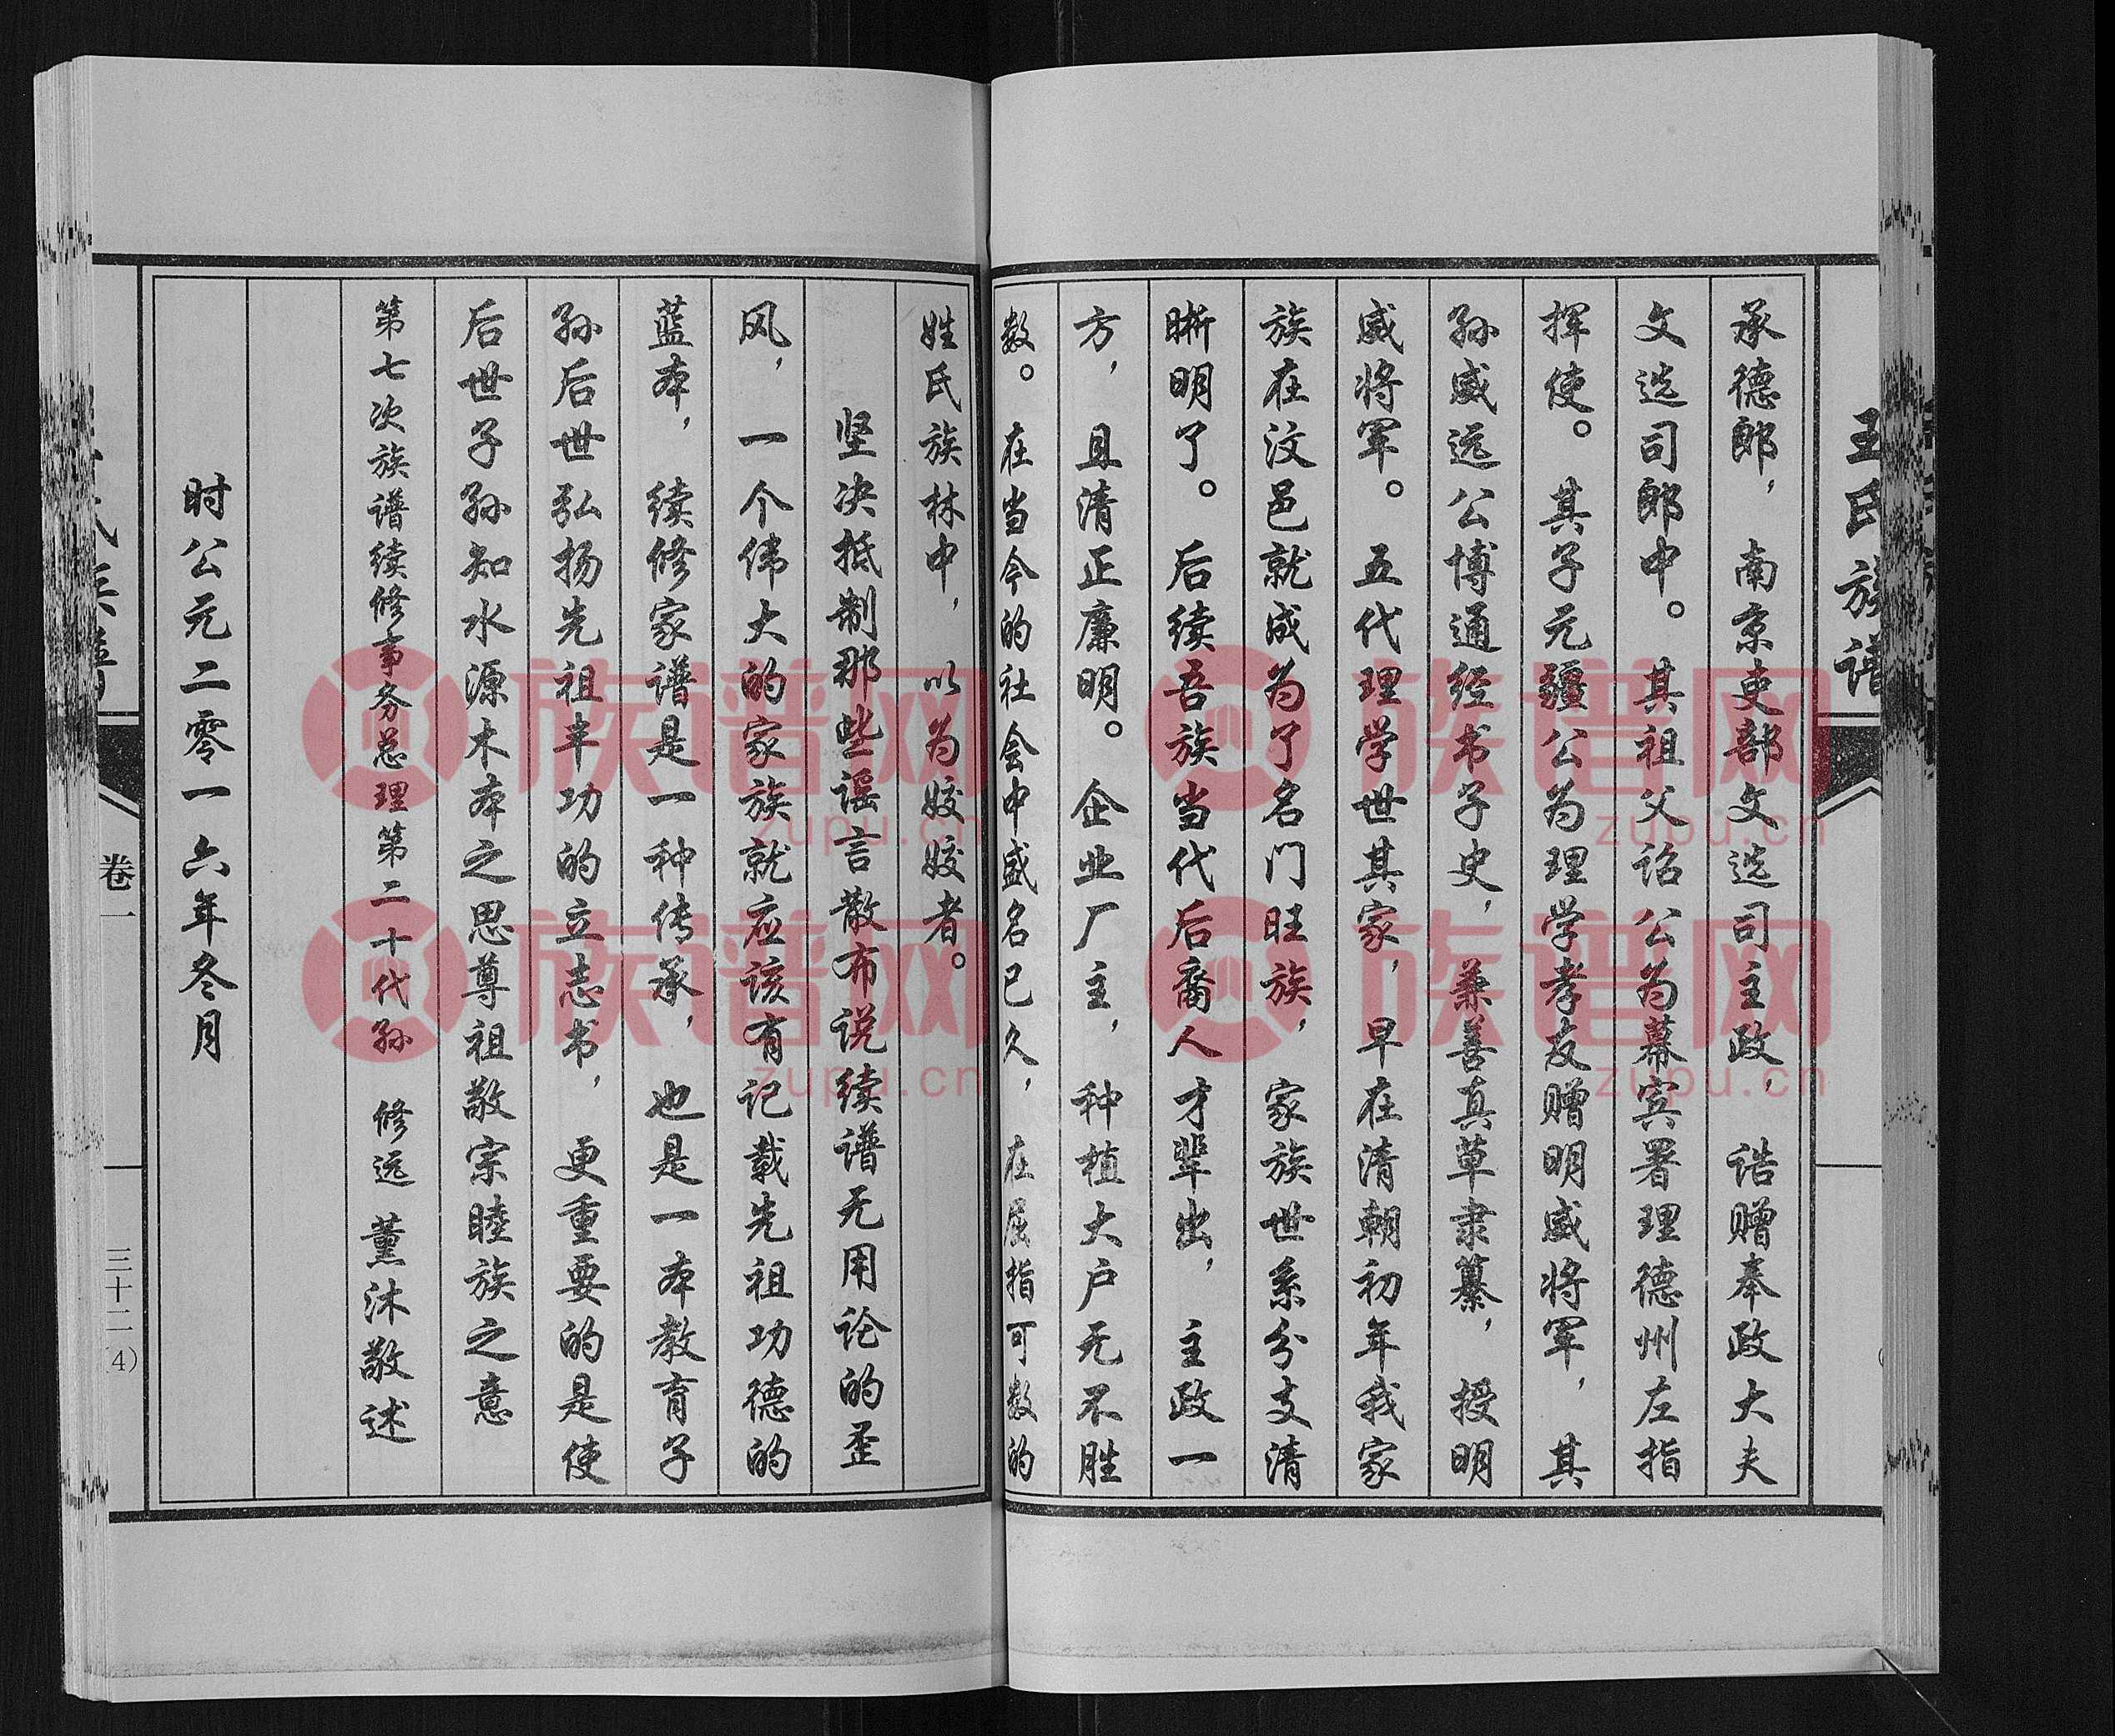 王氏族谱
承德郎，南京吏部文选司主政，诰赠奉政大夫
文选司郎中。其祖父诏公为幕宾署理德州左指
挥使。其子元疆公为理学孝友赠明威将军，其
孙威远公博通经书子史，兼善真草隶纂，授明
威将军。五代理学世其家，早在清朝初年我家
族在汶邑就成为了名门旺族，家族世系分支清
晰明了。后续吾族当代后裔人才辈出，主政一
方，且清正廉明。企业厂主，种植大户无不胜
数。在当今的社会中盛名已久，在屈指可数的
姓氏族林中，以为姣姣者。
坚决抵制那些谣言散布说续谱无用论的歪
风，一个伟大的家族就应该有记载先祖功德的
蓝本，续修家谱是一种传承，也是一本教育子
孙后世弘扬先祖丰功的立志书，更重要的是使
后世子孙知水源木本之思尊祖敬宗睦族之意
第七次族谱续修事务总理第二十代孙 修远 薰沐敬述
时公元二零一六年冬月
卷一
三十二(4)
族谱网
zupu.cn
族谱网
zupu.cn
族谱网
zupu.cn
族谱网
zupu.cn